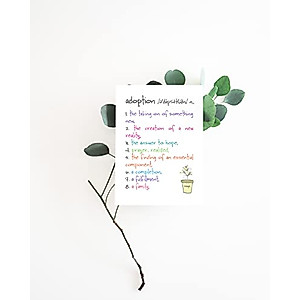 adoption /əˈdɒpʃ(ə)n/ n.
1. the taking on of something
new,
2. the creation of a new
reality,
3. the answer to hope,
4. prayer, realized,
5. the finding of an essential
component,
6. a completion,
7. a fulfillment,
8. a family.